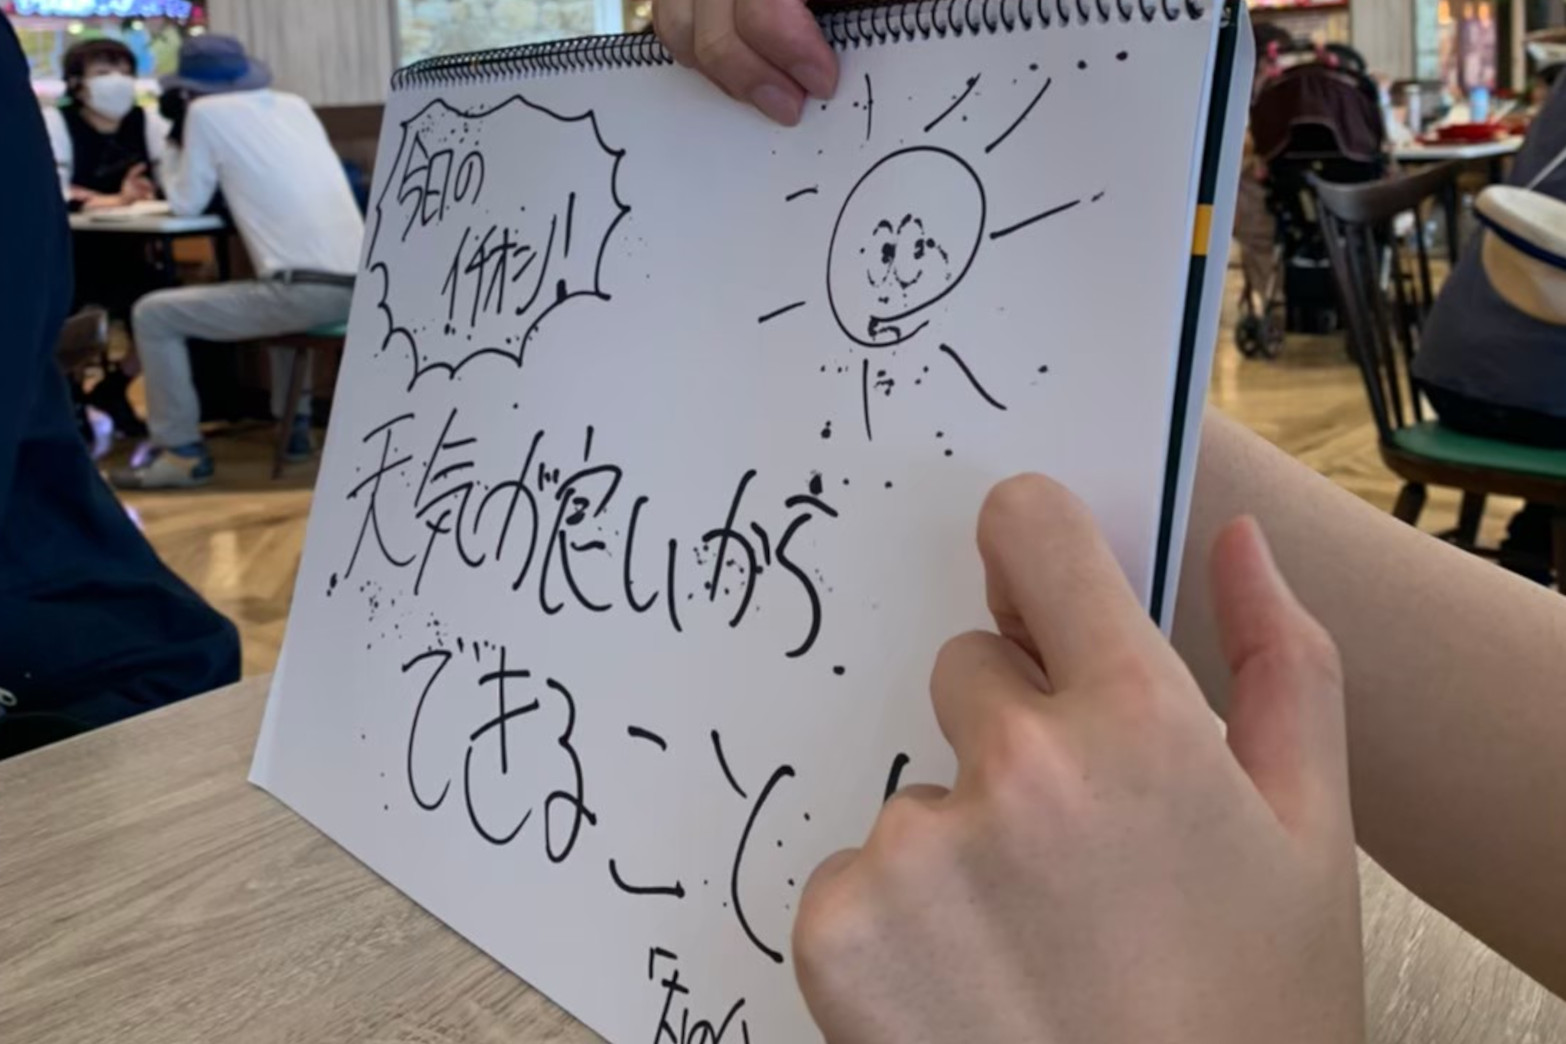 今日の
イチオシ!
天気が良いから
できること